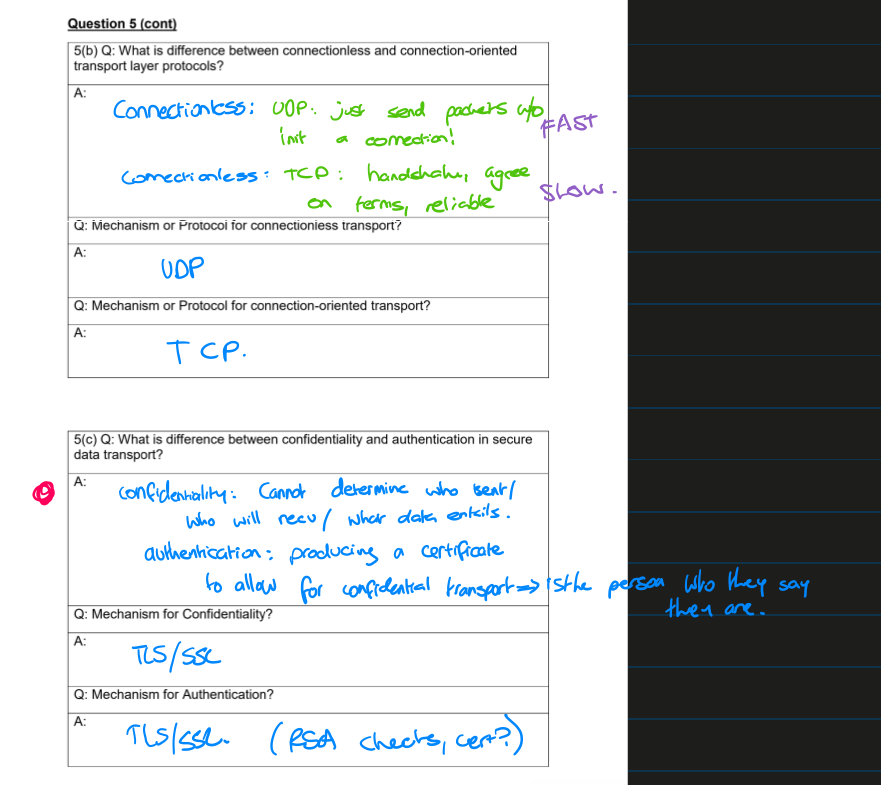 Question 5 (cont)
5(b) Q: What is difference between connectionless and connection-oriented
transport layer protocols?
A:
Connectionless: UDP: just send packets w/o
init a connection!
FAST
Connectionless: TCP: handshake, agree
on terms, reliable
SLOW.
Q: Mechanism or Protocol for connectionless transport?
A:
UDP
Q: Mechanism or Protocol for connection-oriented transport?
A:
TCP.
5(c) Q: What is difference between confidentiality and authentication in secure
data transport?
A:
confidentiality: Cannot determine who sent/
who will recv/ what data entails.
authentication: producing a certificate
to allow for confidential transport => is the person who they say
they are.
Q: Mechanism for Confidentiality?
A:
TLS/SSL
Q: Mechanism for Authentication?
A:
TLS/SSL. (RSA checks, cert?)